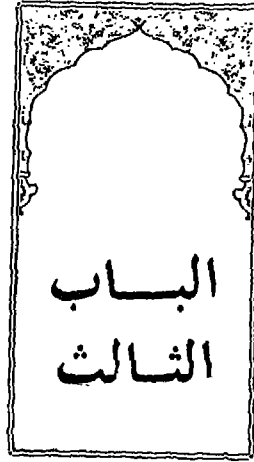 الباب
الثالث